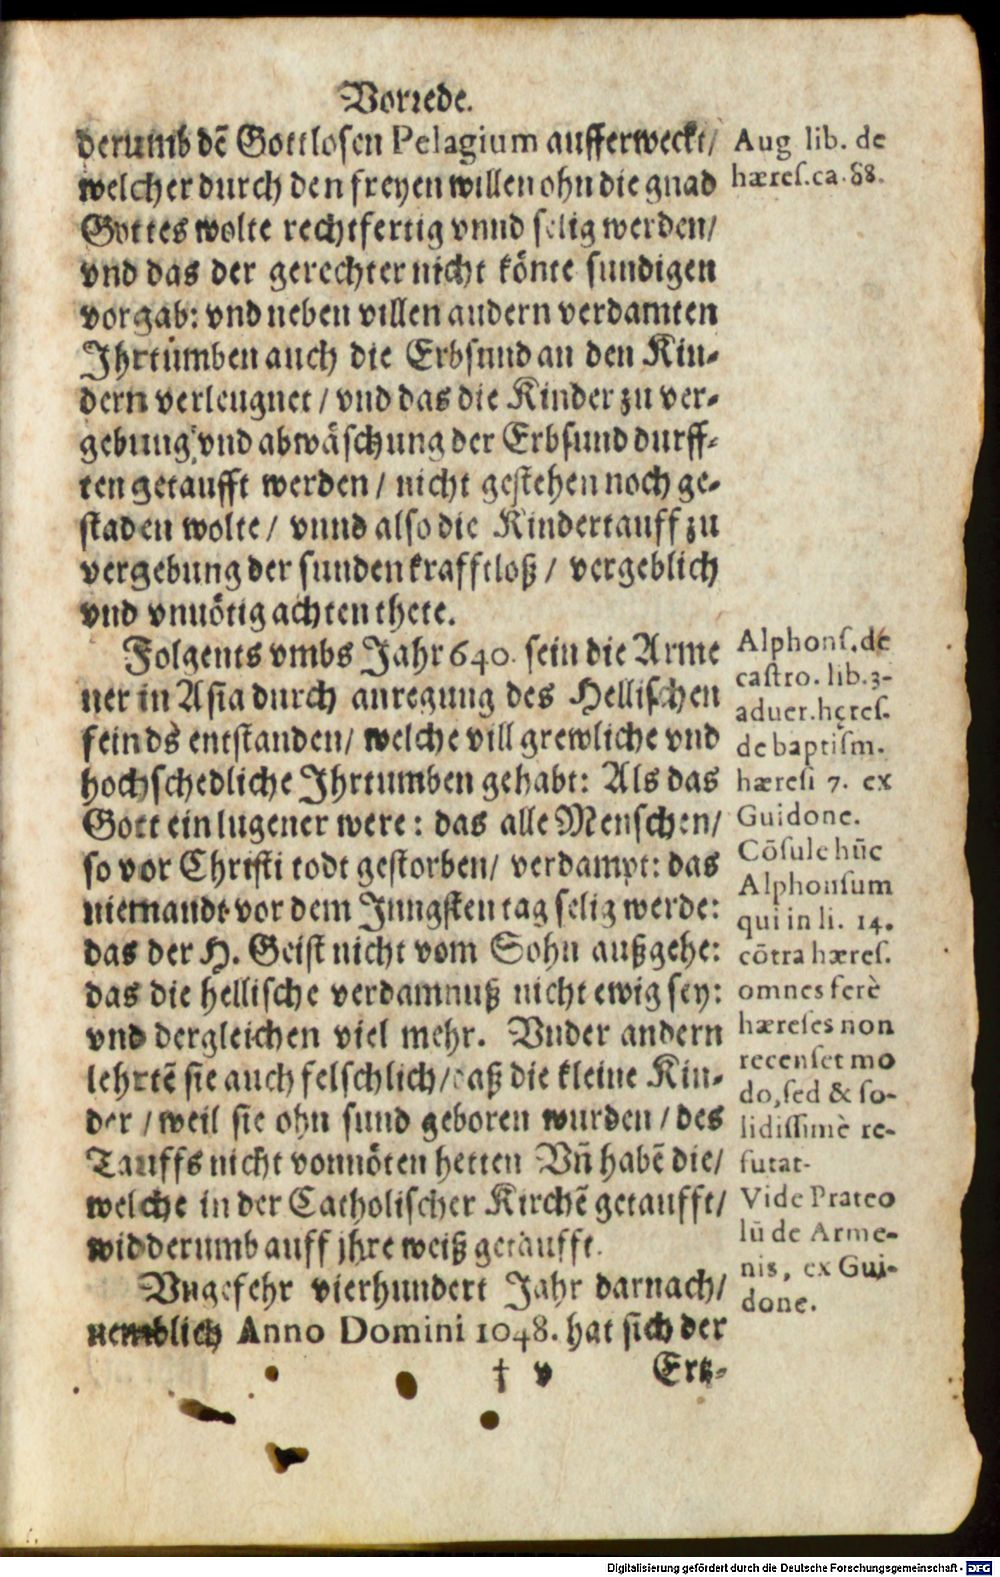 Vorrede.
derumb dē Gottlosen Pelagium aufferweckt/
welcher durch den freyen willen ohn die gnad
Gottes wolte rechtfertig vnnd selig werden/
vnd das der gerechter nicht könte sundigen
vorgab: vnd neben villen andern verdamten
Jhrtumben auch die Erbsund an den Kin-
dern verleugnet / vnd das die Kinder zu ver-
gebung vnd abwäschung der Erbsund durff-
ten getaufft werden / nicht gestehen noch ge-
staden wolte / vnnd also die Kindertauff zu
vergebung der sunden krafftloß / vergeblich
vnd vnnötig achten thete.
Folgents vmbs Jahr 640. sein die Arme
ner in Asia durch anregung des Hellischen
feinds entstanden/ welche vill grewliche vnd
hochschedliche Jhrtumben gehabt: Als das
Gott ein lugener were: das alle Menschen/
so vor Christi todt gestorben/ verdampt: das
niemandt vor dem Jungsten tag selig werde:
das der H. Geist nicht vom Sohn außgehe:
das die hellische verdamnuß nicht ewig sey:
vnd dergleichen viel mehr. Vnder andern
lehrtē sie auch felschlich/ daß die kleine Kin-
der / weil sie ohn sund geboren wurden / des
Tauffs nicht vonnöten hetten Vn̄ habē die/
welche in der Catholischer Kirchē getaufft/
widderumb auff jhre weiß getaufft.
Vngefehr vierhundert Jahr darnach/
nemblich Anno Domini 1048. hat sich der
† v Ertz-
Aug lib. de
hæres.ca.88.
Alphonſ. de
caſtro. lib. 3-
aduer. hęreſ.
de baptiſm.
hæreſi 7. ex
Guidone.
Cōſule hūc
Alphonſum
qui in li. 14.
cōtra hæreſ.
omnes ferè
hæreſes non
recenſet mo
do, ſed & ſo-
lidiſſimè re-
futat.
Vide Prateo
lū de Arme-
nis, ex Gui-
done.
Digitalisierung gefördert durch die Deutsche Forschungsgemeinschaft - DFG